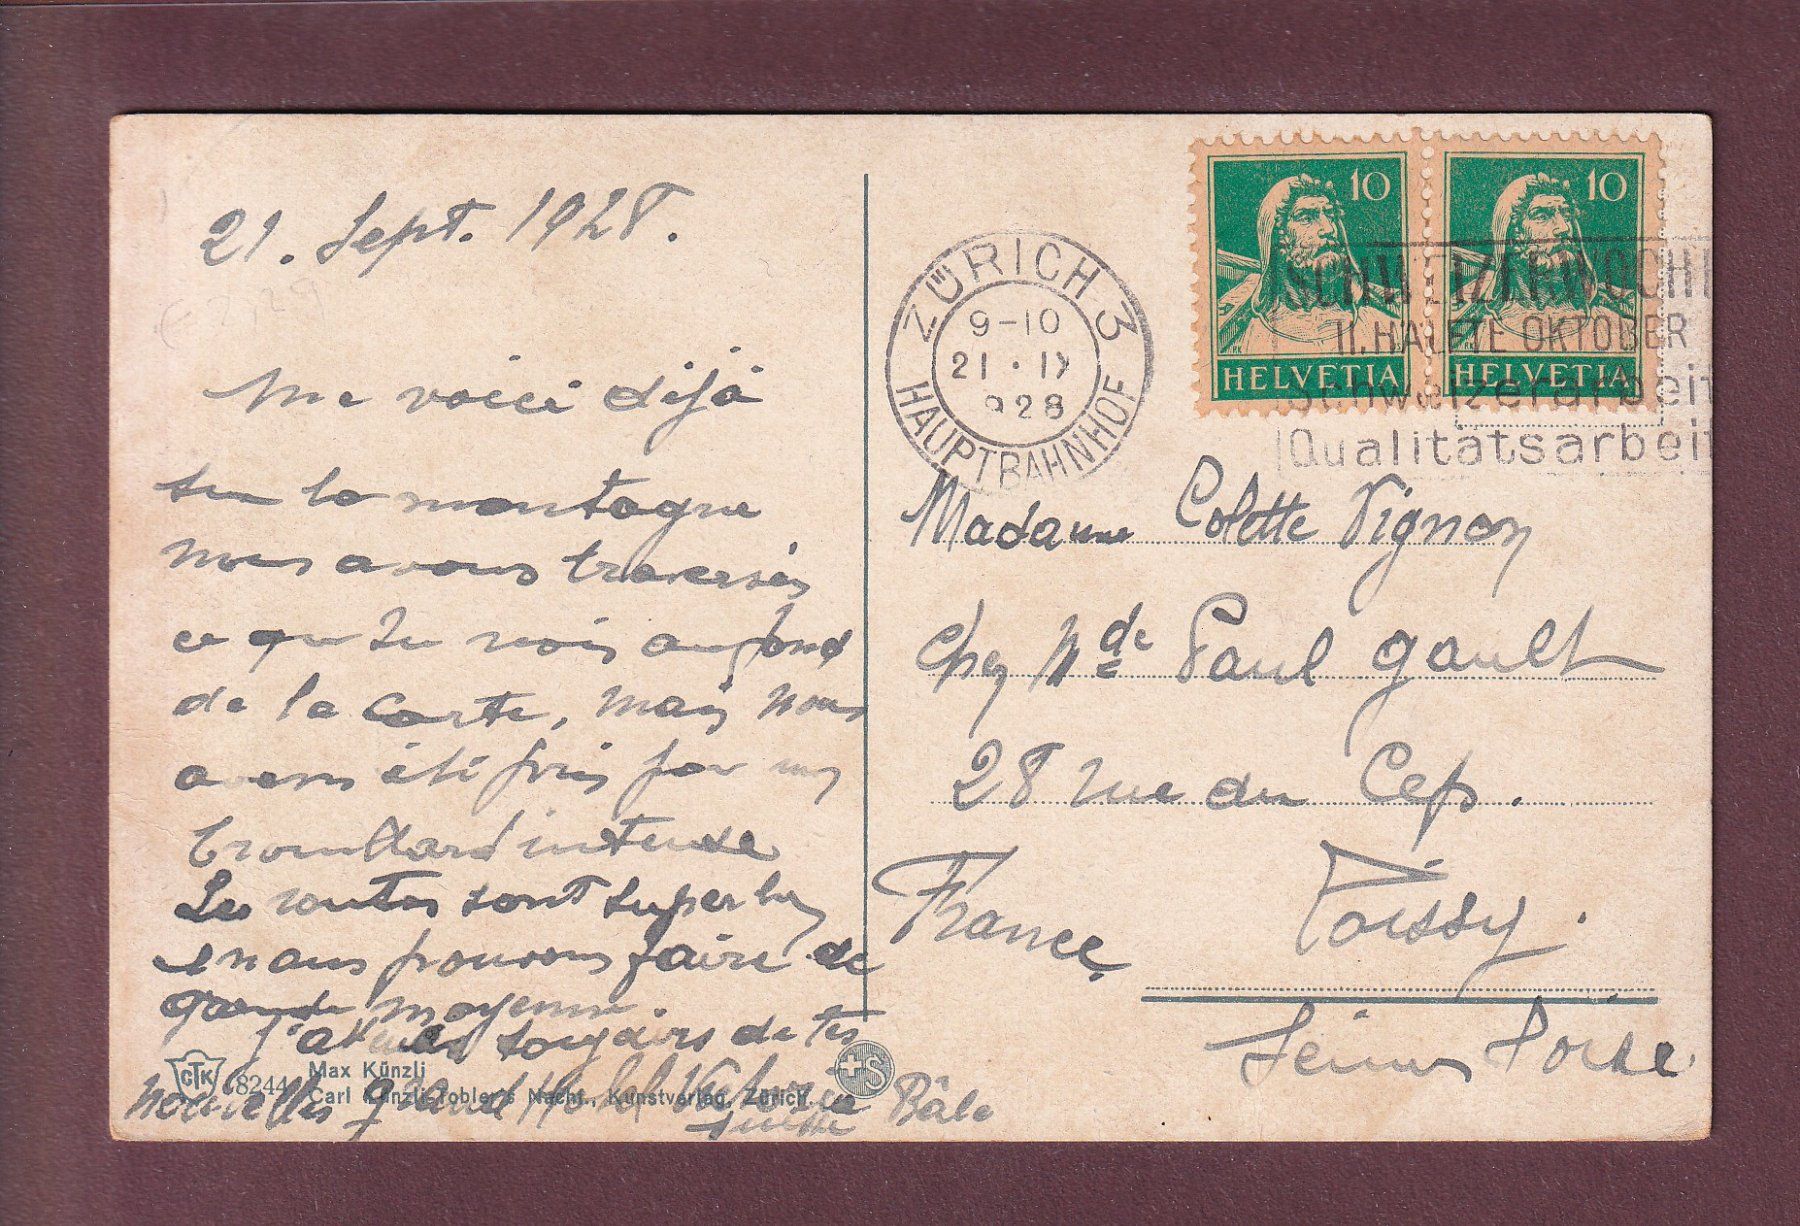 21. Sept. 1928.
Me voici déjà
sur la montagne
nous avons traversés
ce que tu vois au fond
de la carte, mais nous
avons été pris par un
brouillard intense
Les routes sont superbes
et nous pouvons faire de
grande moyenne.
J'attends toujours de tes
nouvelles Grand Hotel Victoria Bâle
CTK 8244 Max Künzli
Carl Künzli-Tobler's Nachf., Kunstverlag, Zürich.
+S
ZÜRICH 3
9-10
21.IX
1928
HAUPTBAHNHOF
10
HELVETIA
10
HELVETIA
SCHWEIZERWOCHE
II. HÄLFTE OKTOBER
Schweizerarbeit
Qualitätsarbeit
Madame Colette Vignon
chez Mde Paul Gault
28 rue du Cep.
France Poissy.
Seine & Oise
€ 2,29